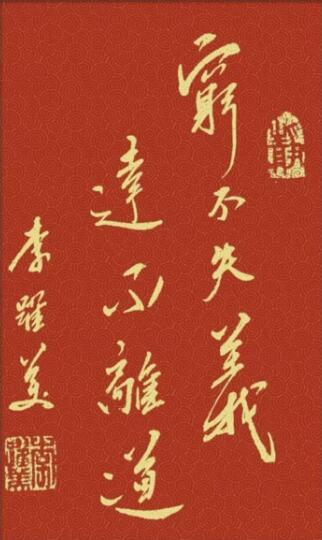 窮不失義
達不離道
李躍美